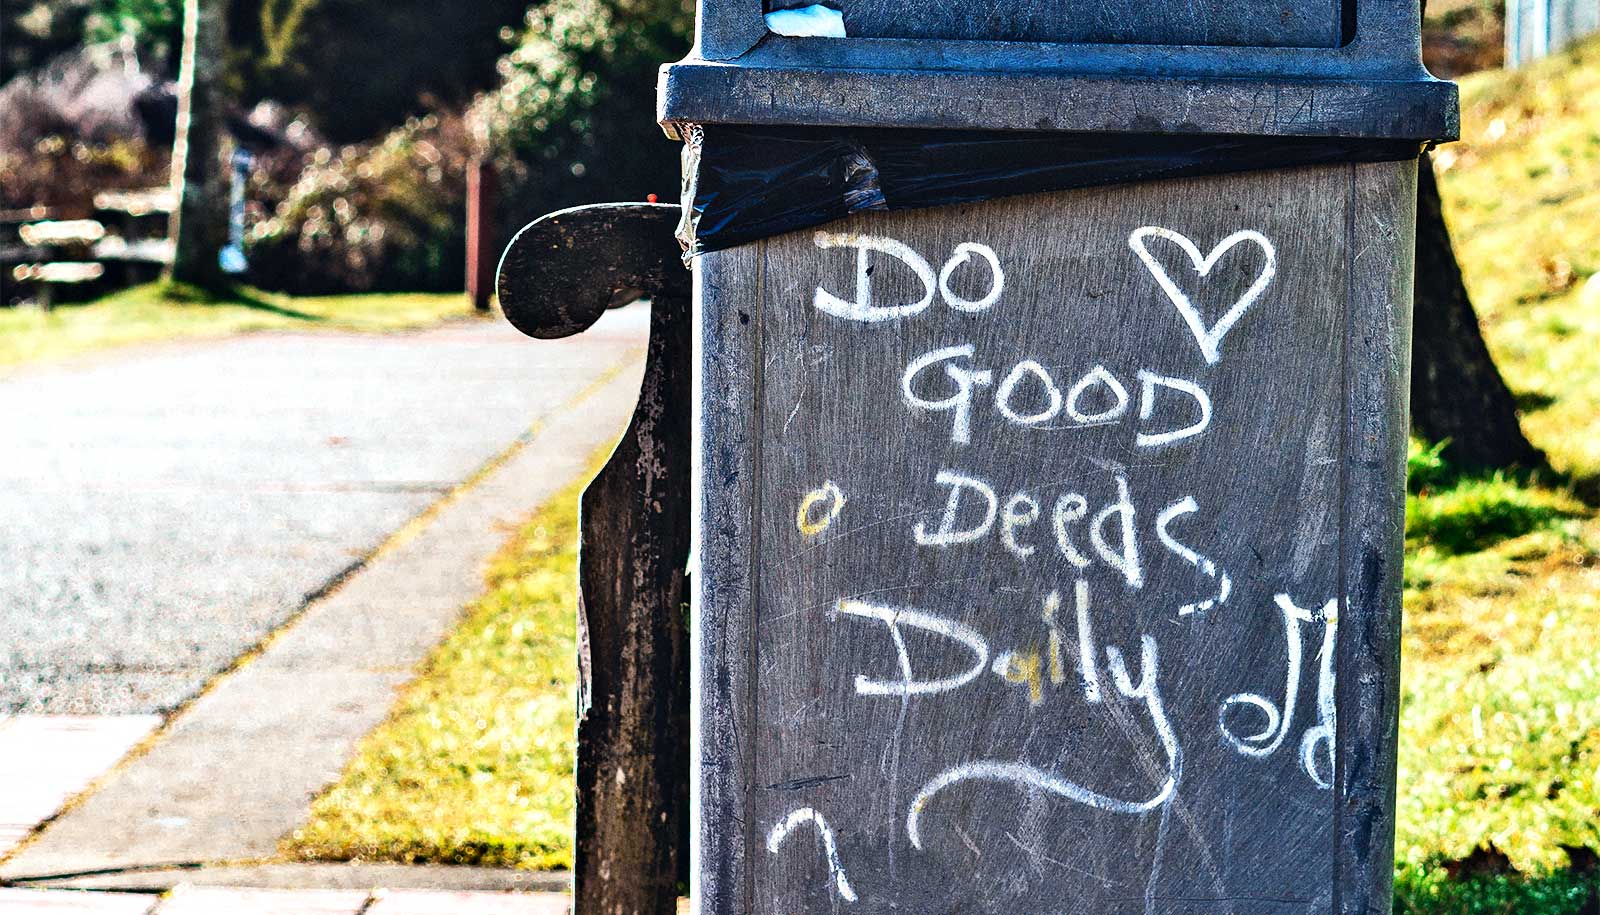 DO
GOOD
Deeds
Daily